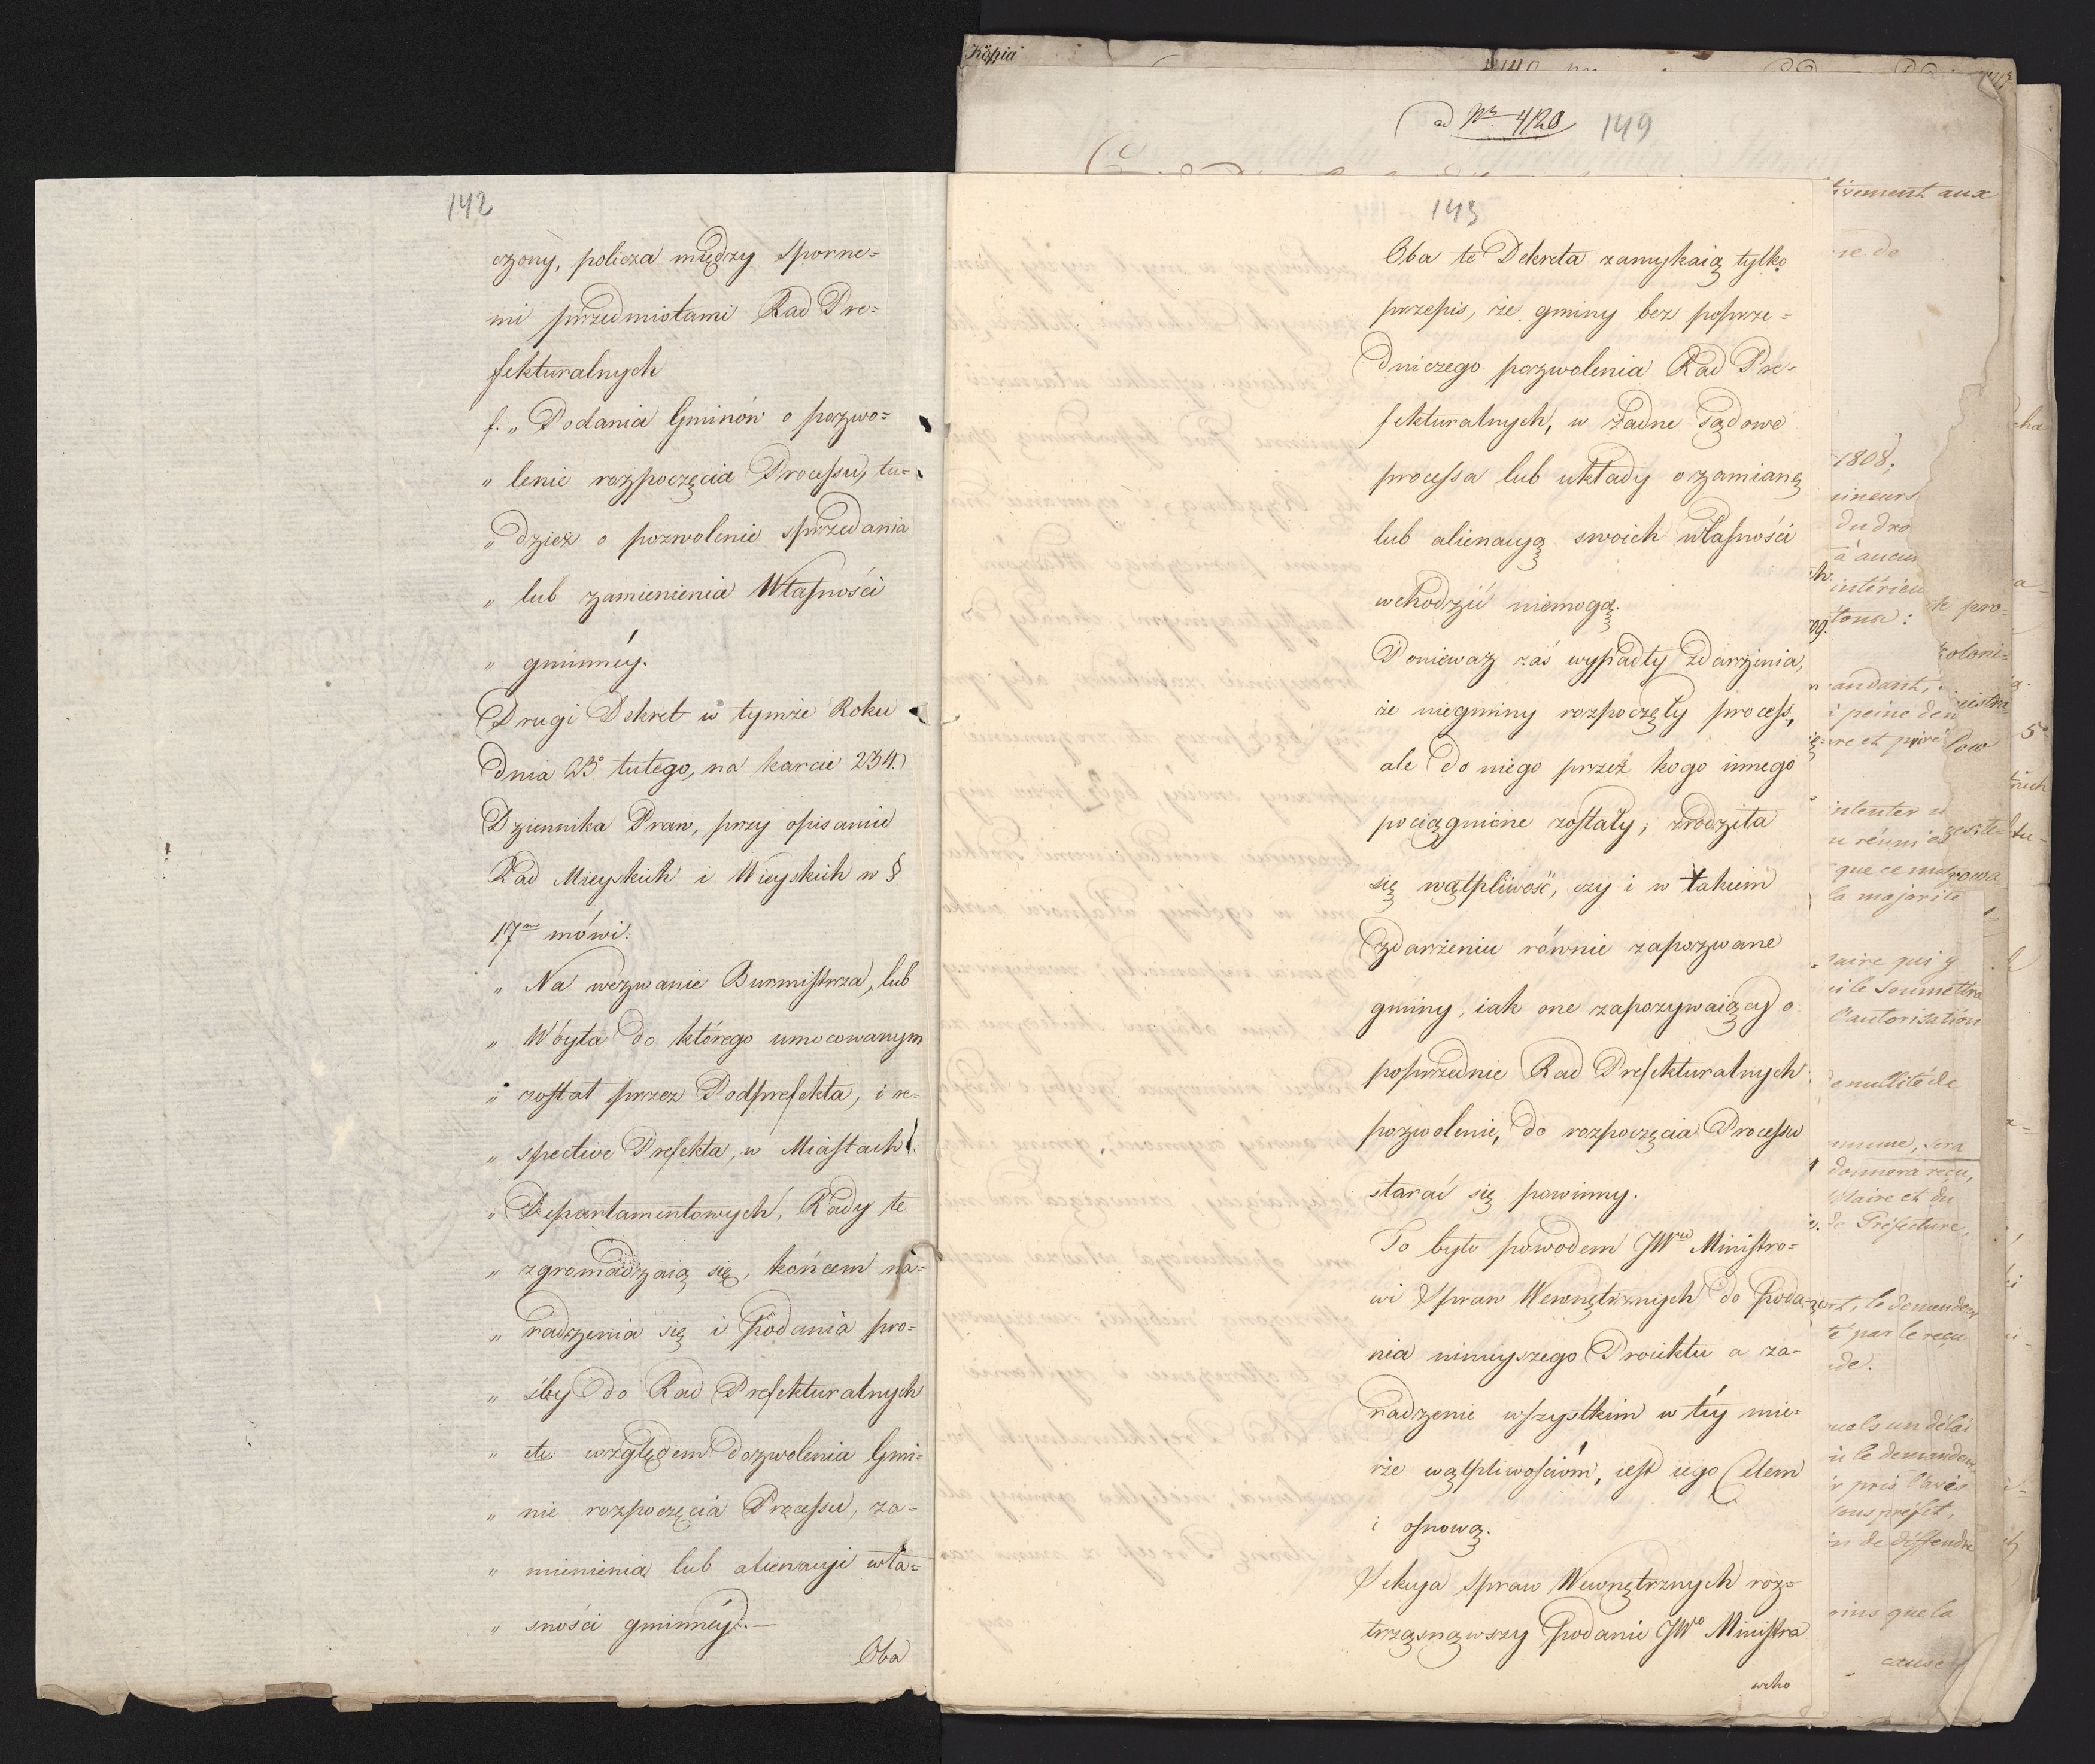 142
czony, policza między sporne=
mi przedmiotami Rad Pre=
fekturalnych
f. „ Podania Gminów o pozwo=
„ lenie rozpoczęcia Processu, tu=
„ dzież o pozwolenie sprzedania
„ lub zamienienia Własności
„ gminnéy.
Drugi Dekret w tymże Roku
dnia 23° lutego, na karcie 234.
Dziennika Praw, przy opisanie
Rad Mieyskich i Wieyskich w §
17mo mówi:
„ Na wezwanie Burmistrza, lub
„ Wóyta do którego umocowanym
„ został przez Podprefekta, i re=
„ spective Prefekta, w Miastach
„ Departamentowych, Rady te
„ zgromadzaią się, końcem na=
„ radzenia się i podania pro=
„ śby do Rad Prefekturalnych
„ etc: względem dozwolenia Gmi=
„ nie rozpoczęcia Processu, za=
„ mienienia lub alienacyi wła=
„ sności gminnéy. —
Oba
Kopia
ad Nr 4120 149
143
Oba te Dekreta zamykaią tylko
przepis, że gminy bez poprze=
dniczego pozwolenia Rad Pre=
fekturalnych, w żadne sądowe
processa lub układy o zamianę
lub alienacyą swoich własności
wchodzić niemogą.
Ponieważ zaś wypadły zdarzenia,
że niegminy rozpoczęły process,
ale do niego przez kogo innego
pociągnione zostały; zrodziła
się wątpliwość, czy i w takim
zdarzeniu równie zapozwane
gminy, iak one zapozywaiący o
poprzednie Rad Prefekturalnych
pozwolenie, do rozpoczęcia Processu
starać się powinny.
To było powodem JWmu Ministro=
wi Spraw Wewnętrznych do poda=
nia ninieyszego Proiektu a za=
radzenie wszystkim w téy mie=
rze wątpliwościom, iest iego Celem
i osnową.
Sekcya Spraw Wewnętrznych roz=
trząsnąwszy podanie JWo Ministra
wcho
ivement aux
1808,
du dro
intérieu
andant,
peine de
intenter
que ce
la majorité
aire qui y
soumettra
l'autorisation
nullité de
donnera reçu,
Maire et du
de Préfecture,
le demandeur
par le reçu
un délai
le demandeur
pris l'avis
sous préfet,
de deffendre
que la
cause